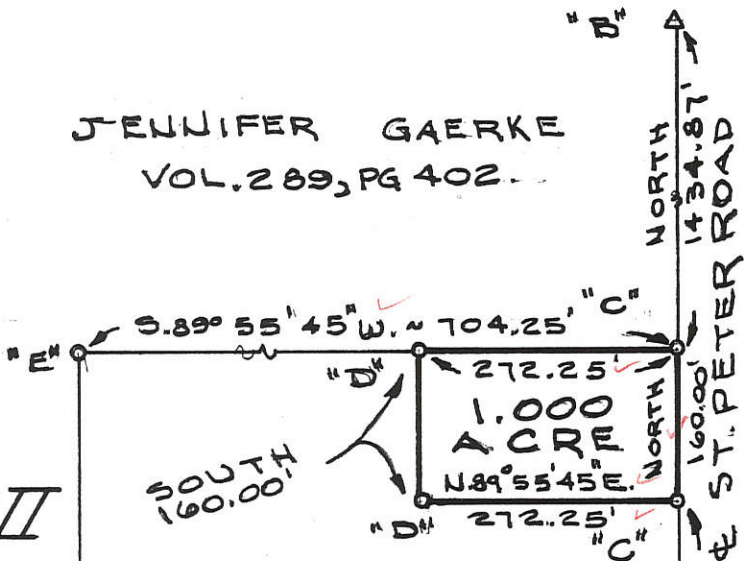 "B"
JENNIFER GAERKE
VOL. 289, PG 402.
NORTH
1434.87'
ST. PETER ROAD
S. 89° 55' 45" W. ~ 704.25'
"C"
"E"
"D"
272.25'
1.000
ACRE
NORTH
160.00'
SOUTH
160.00'
N. 89° 55' 45" E.
II
"D"
272.25'
"C"
℄